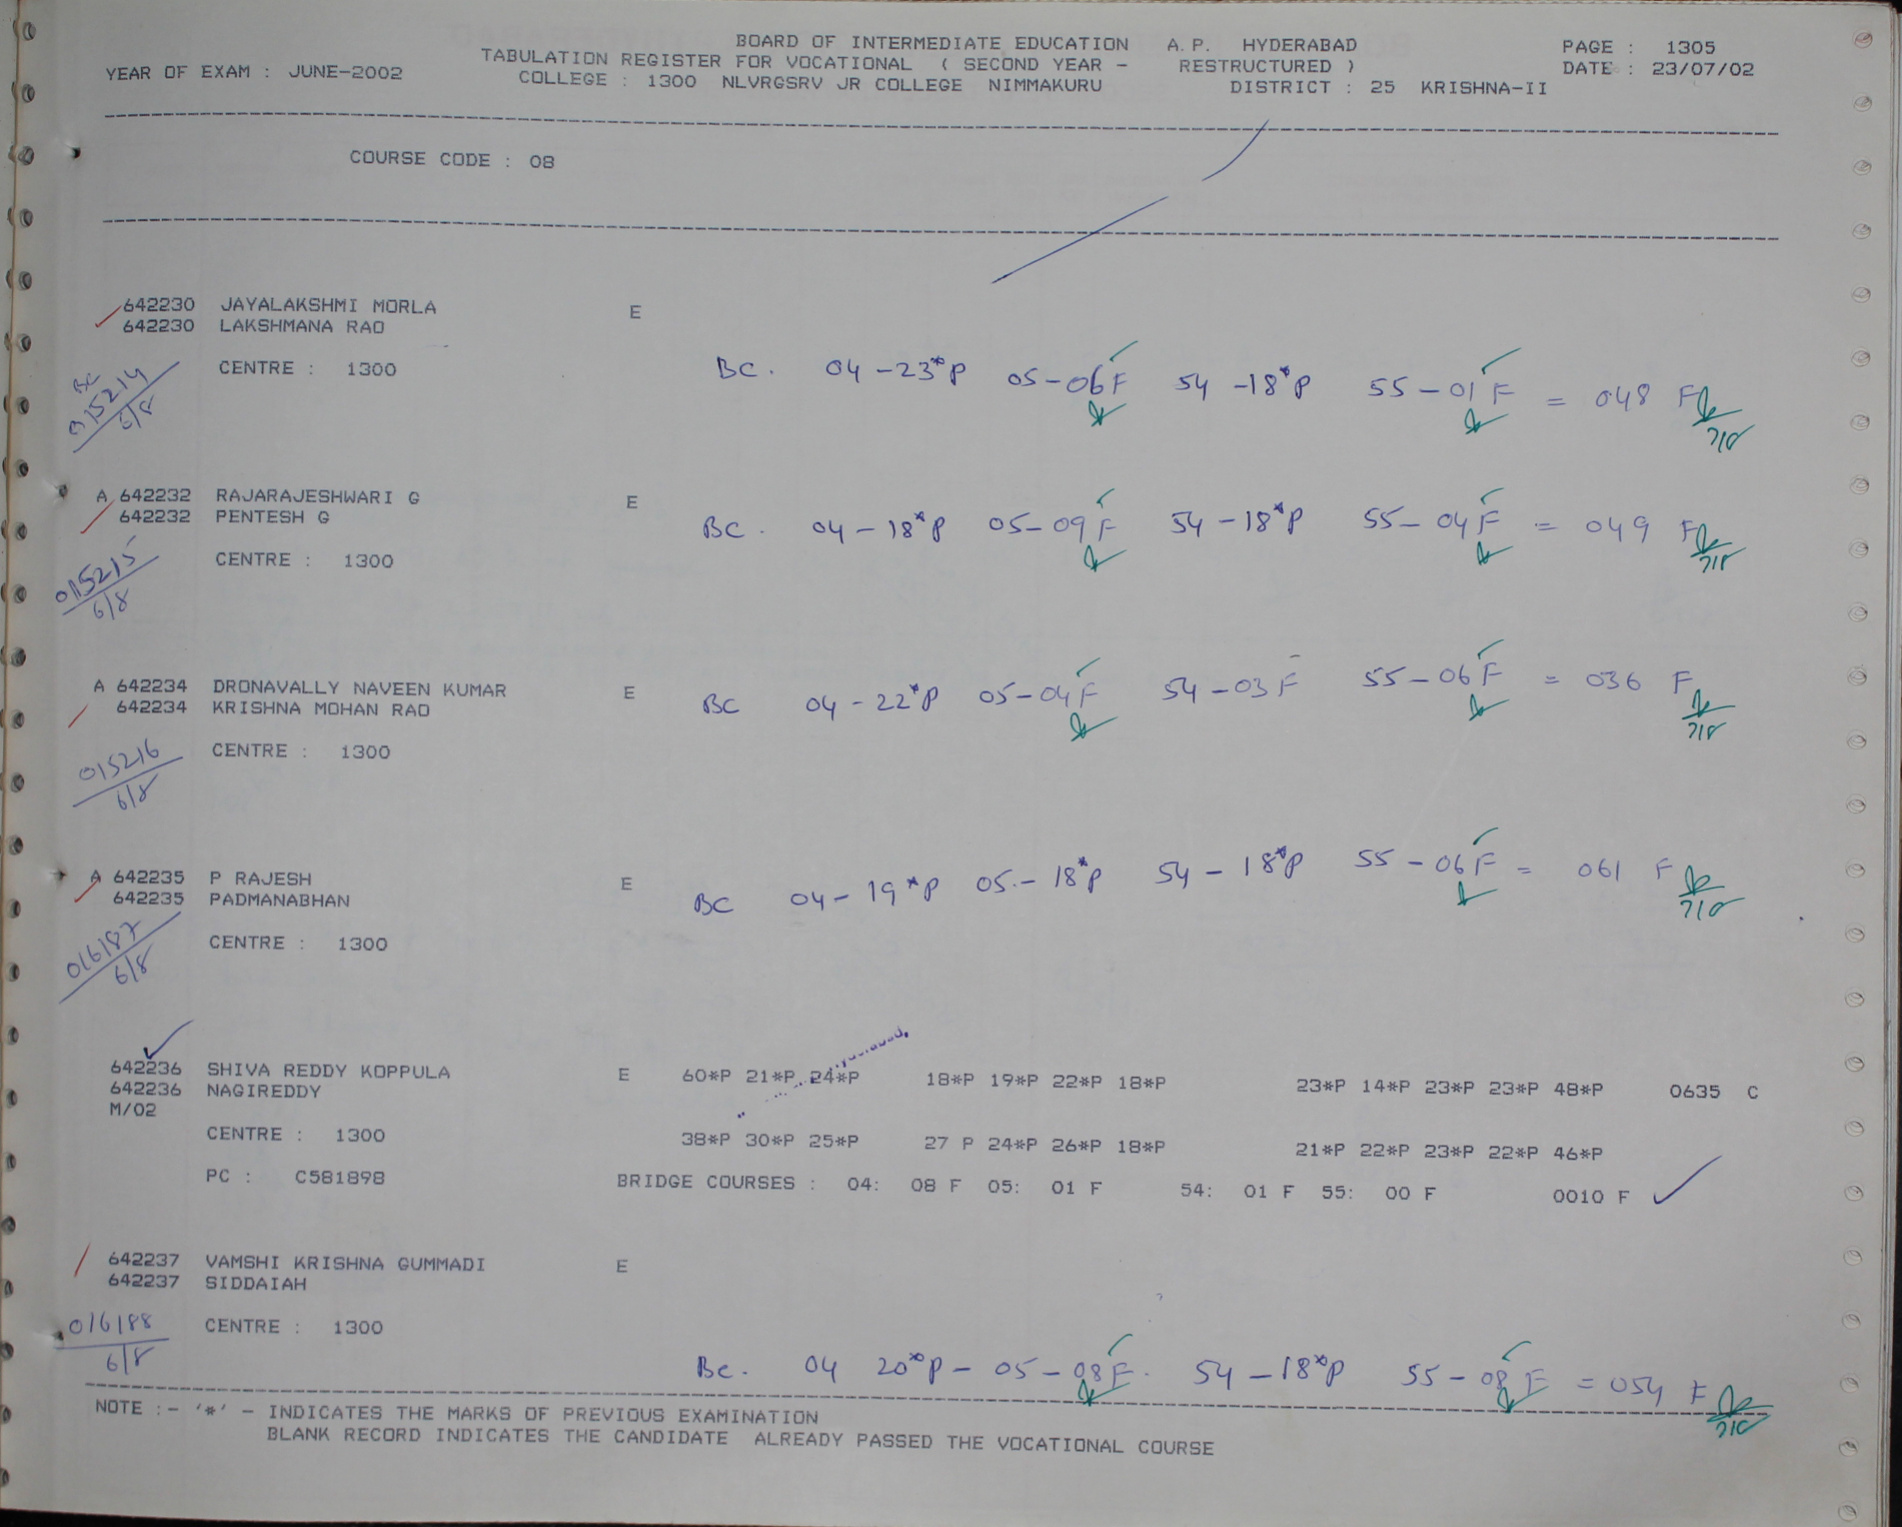 BOARD OF INTERMEDIATE EDUCATION A.P. HYDERABAD PAGE : 1305
YEAR OF EXAM : JUNE-2002 TABULATION REGISTER FOR VOCATIONAL ( SECOND YEAR - RESTRUCTURED ) DATE : 23/07/02
COLLEGE : 1300 NLVRGSRV JR COLLEGE NIMMAKURU DISTRICT : 25 KRISHNA-II
COURSE CODE : 08
642230 JAYALAKSHMI MORLA E
642230 LAKSHMANA RAO
CENTRE : 1300
BC. 04-23*P 05-06F 54-18*P 55-01F = 048 F
BC
015214
6/8
A 642232 RAJARAJESHWARI G E
642232 PENTESH G
BC. 04-18*P 05-09F 54-18*P 55-04F = 049 F
CENTRE : 1300
015215
6/8
A 642234 DRONAVALLY NAVEEN KUMAR E
642234 KRISHNA MOHAN RAO
BC 04-22*P 05-04F 54-03F 55-06F = 036 F
CENTRE : 1300
015216
6/8
A 642235 P RAJESH E
642235 PADMANABHAN
BC 04-19*P 05-18*P 54-18*P 55-06F = 061 F
CENTRE : 1300
016187
6/8
642236 SHIVA REDDY KOPPULA E 60*P 21*P 24*P 18*P 19*P 22*P 18*P 23*P 14*P 23*P 23*P 48*P 0635 C
642236 NAGIREDDY
M/02
CENTRE : 1300 38*P 30*P 25*P 27 P 24*P 26*P 18*P 21*P 22*P 23*P 22*P 46*P
PC : C581898 BRIDGE COURSES : 04: 08 F 05: 01 F 54: 01 F 55: 00 F 0010 F
642237 VAMSHI KRISHNA GUMMADI E
642237 SIDDAIAH
CENTRE : 1300
016188
6/8
BC. 04 20*P - 05-08F. 54-18*P 55-08F = 054 F
NOTE :- '*' - INDICATES THE MARKS OF PREVIOUS EXAMINATION
BLANK RECORD INDICATES THE CANDIDATE ALREADY PASSED THE VOCATIONAL COURSE